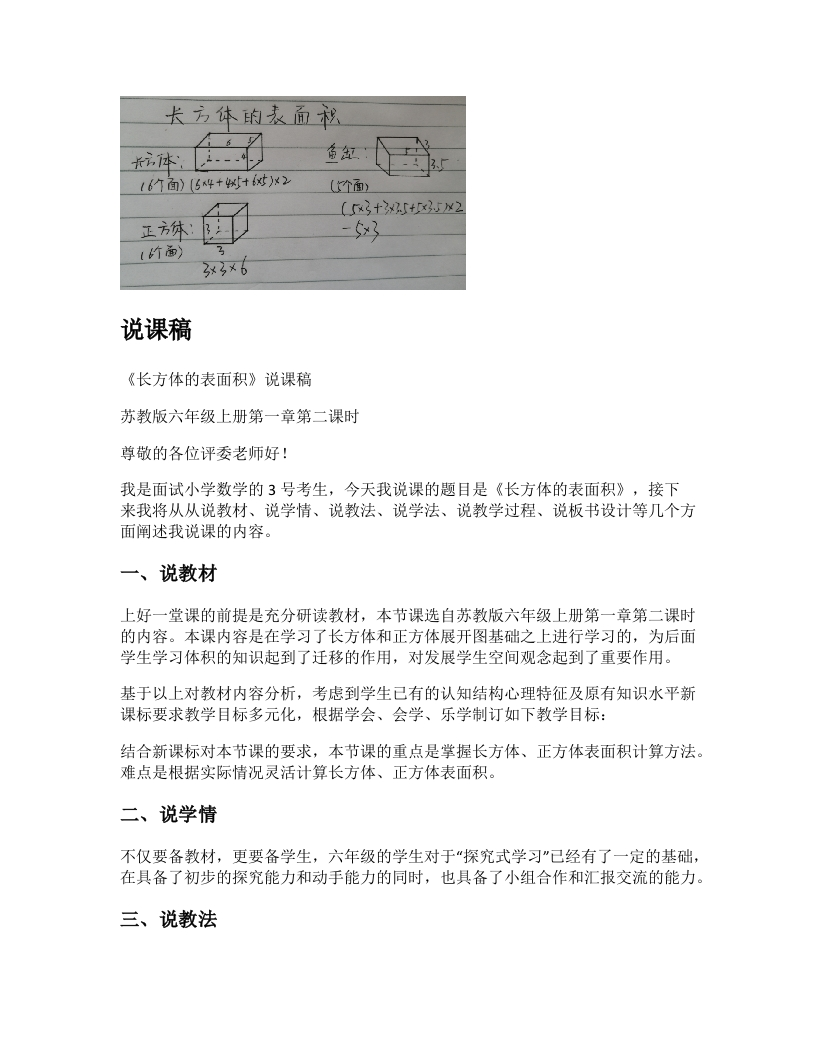 长方体的表面积
长方体：
6
5
4
(6个面) (6×4+4×5+6×5)×2
鱼缸：
5
3
3.5
(5个面)
(5×3+3×3.5+5×3.5)×2
-5×3
正方体：
3
3
(6个面)
3×3×6
说课稿
《长方体的表面积》说课稿
苏教版六年级上册第一章第二课时
尊敬的各位评委老师好！
我是面试小学数学的 3 号考生，今天我说课的题目是《长方体的表面积》，接下
来我将从从说教材、说学情、说教法、说学法、说教学过程、说板书设计等几个方
面阐述我说课的内容。
一、说教材
上好一堂课的前提是充分研读教材，本节课选自苏教版六年级上册第一章第二课时
的内容。本课内容是在学习了长方体和正方体展开图基础之上进行学习的，为后面
学生学习体积的知识起到了迁移的作用，对发展学生空间观念起到了重要作用。
基于以上对教材内容分析，考虑到学生已有的认知结构心理特征及原有知识水平新
课标要求教学目标多元化，根据学会、会学、乐学制订如下教学目标：
结合新课标对本节课的要求，本节课的重点是掌握长方体、正方体表面积计算方法。
难点是根据实际情况灵活计算长方体、正方体表面积。
二、说学情
不仅要备教材，更要备学生，六年级的学生对于“探究式学习”已经有了一定的基础，
在具备了初步的探究能力和动手能力的同时，也具备了小组合作和汇报交流的能力。
三、说教法